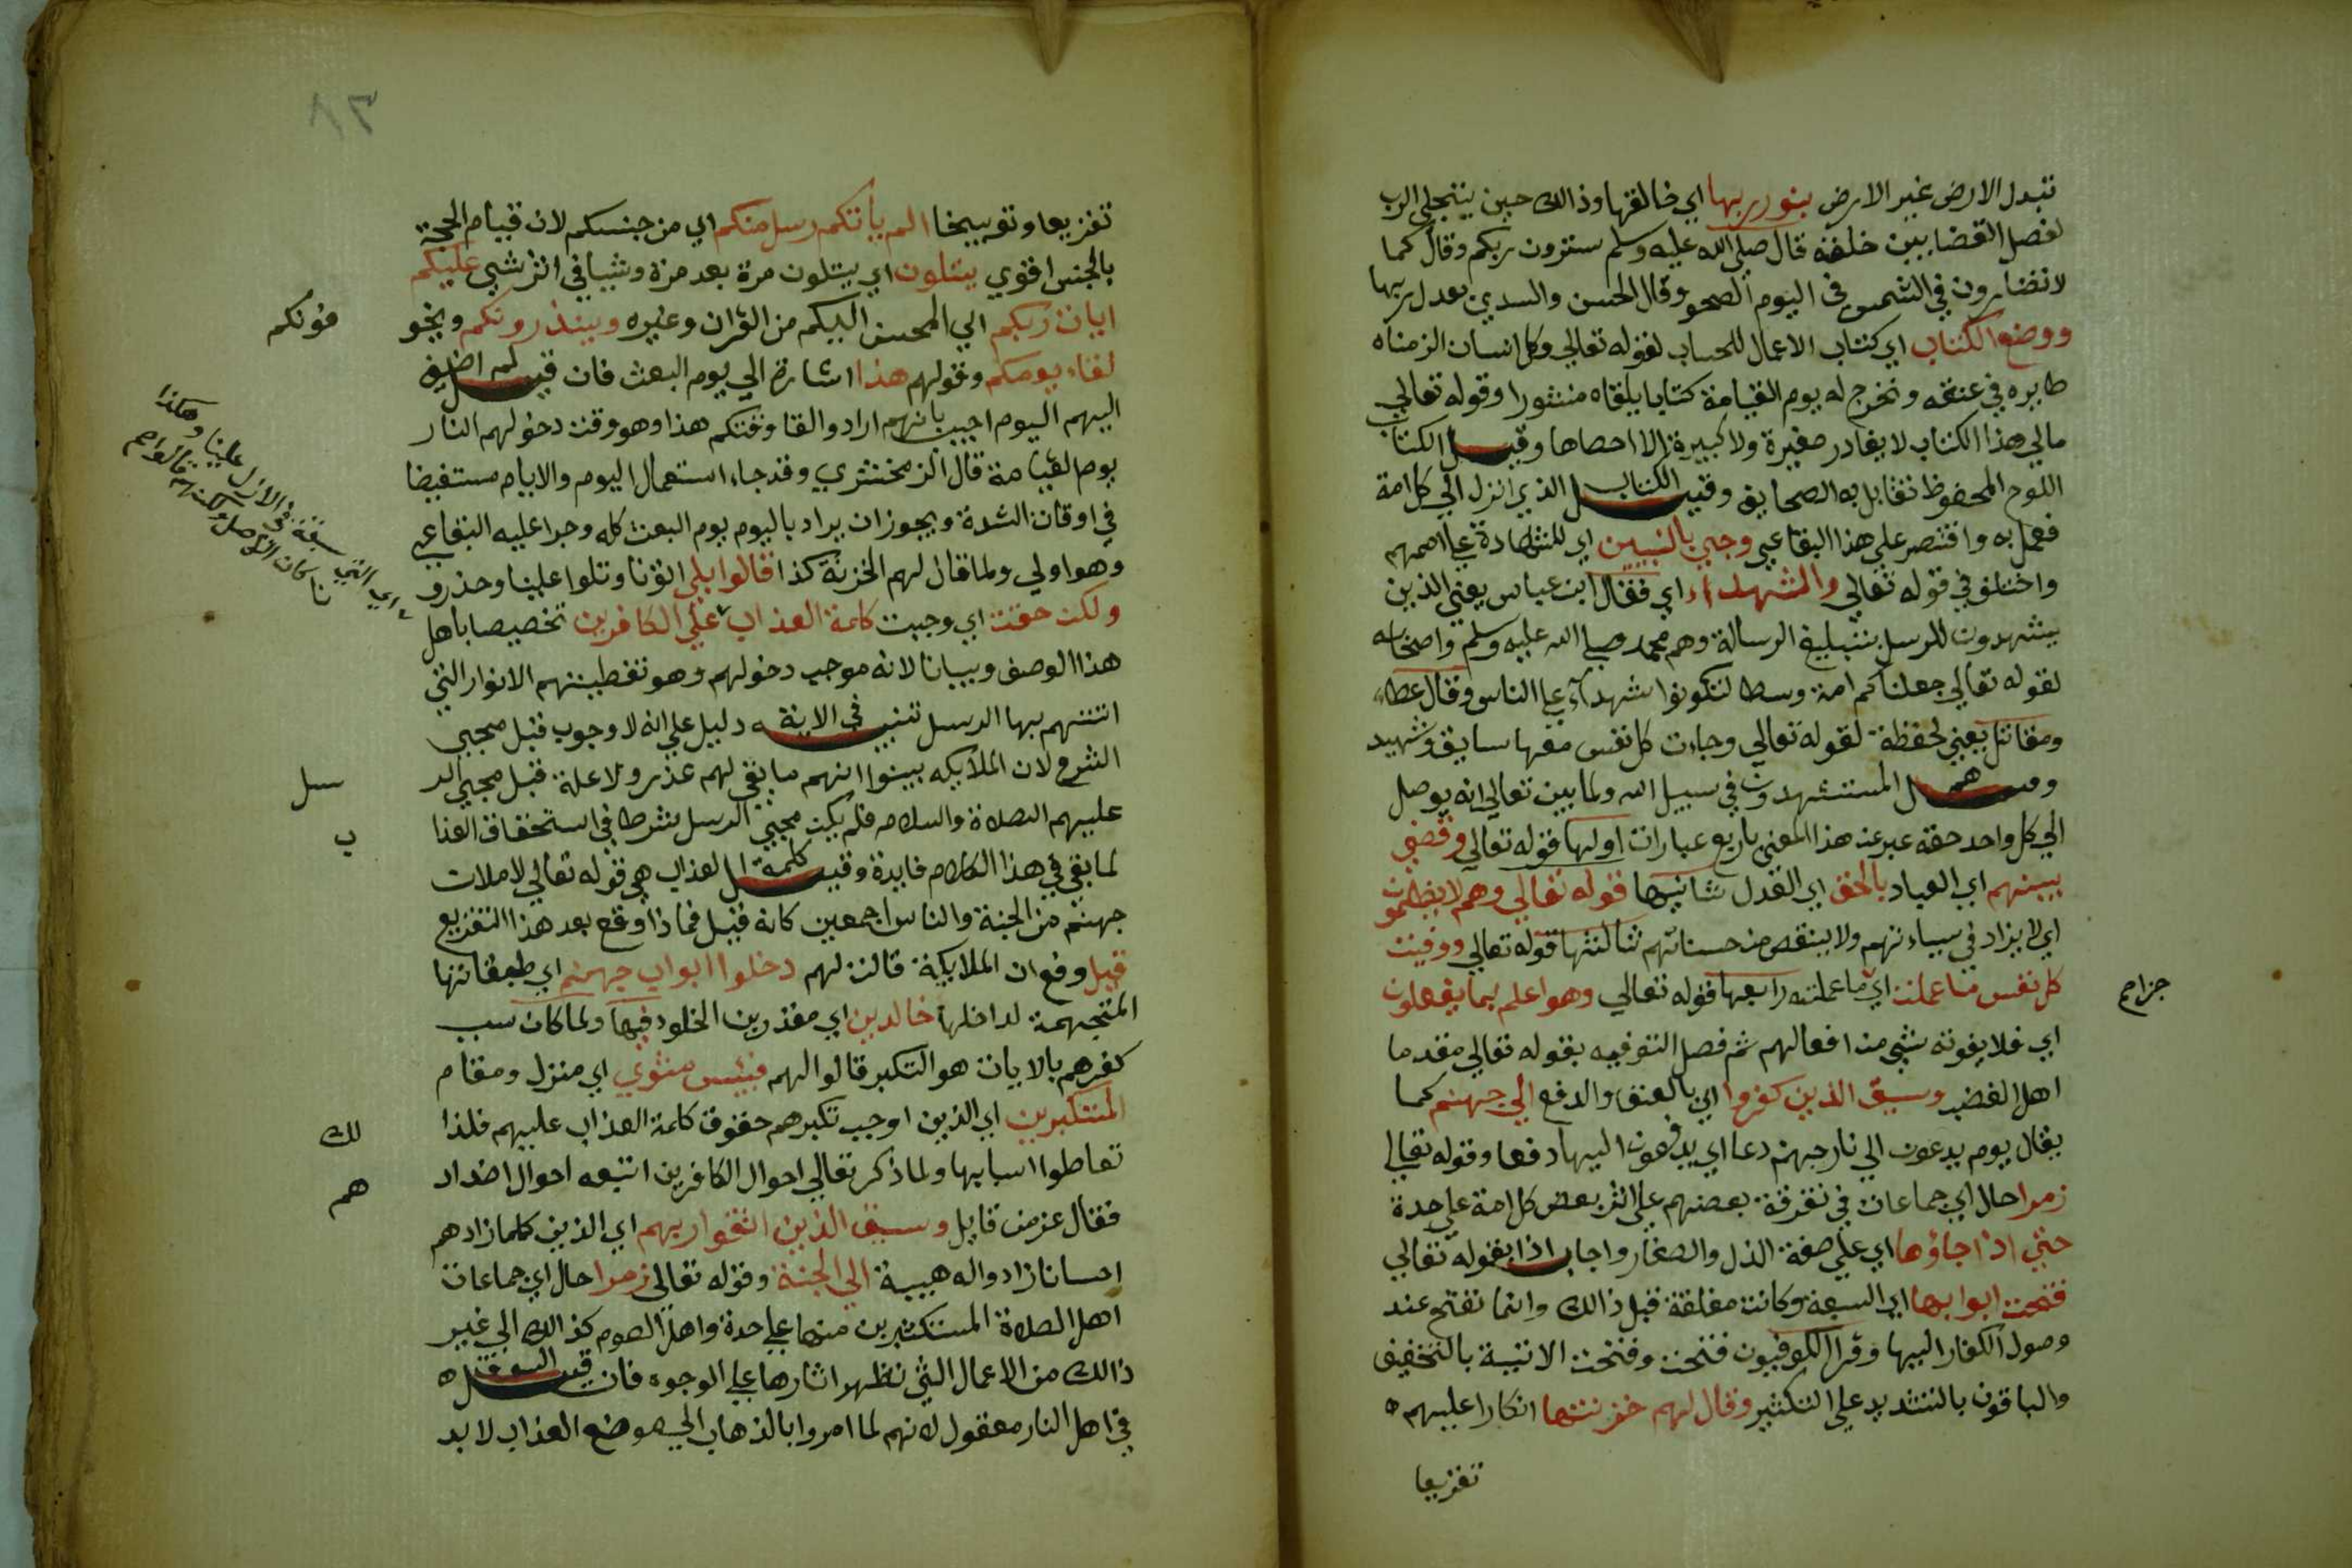 تبدل الارض غير الارض بنور ربها اي خالقها وذالك حين يتجلي الرب
لفصل القضا بين خلقه قال صلي الله عليه وسلم سترون ربكم وقال كما
لا تضارون في الشمس في اليوم الصحو وقال الحسن والسدي بعدل ربها
ووضع الكتاب اي كتاب الاعمال للحساب لقوله تعالي وكل انسان الزمناه
طايره في عنقه ونخرج له يوم القيامة كتابا يلقاه منشورا وقوله تعالي
مالي هذا الكتاب لا يغادر صغيرة ولا كبيرة الا احصاها وقيل الكتاب
اللوح المحفوظ تقابل به الصحايف وقيل الكتاب الذي انزل الي كل امة
فعمل به واقتصر علي هذا البقاعي وجيء بالنبيين اي للشهادة علي اممهم
واختلف في قوله تعالي والشهداء اي فقال ابن عباس يعني الذين
يشهدون للرسل بتبليغ الرسالة وهم محمد صلي الله عليه وسلم واصحابه
لقوله تعالي جعلناكم امة وسطا لتكونوا شهداء علي الناس وقال عطاء
ومقاتل يعني لحفظة لقوله تعالي وجاءت كل نفس معها سايق وشهيد
وقيل هم المستشهدون في سبيل الله ولما بين تعالي انه يوصل
الي كل واحد حقه عبر عن هذا المعني باربع عبارات اولها قوله تعالي وقضي
بينهم اي العباد بالحق اي العدل ثانيها قوله تعالي وهم لا يظلمون
اي لا يزاد في سياءتهم ولا ينقص من حسناتهم ثالثها قوله تعالي ووفيت
كل نفس ما عملت اي ما عملته رابعها قوله تعالي وهو اعلم بما يفعلون
جزاء
اي فلا يفوته شيء من افعالهم ثم فصل التوفيه بقوله تعالي مقدما
اهل الغضب وسيق الذين كفروا اي بالعنف والدفع الي جهنم كما
يقال يوم يدعون الي نار جهنم دعا اي يدفعون اليها دفعا وقوله تعالي
زمرا حال اي جماعات في تفرقة بعضهم علي اثر بعض كل امة علي حدة
حتي اذا جاؤها اي علي صفة الذل والصغار واجاب اذا بقوله تعالي
فتحت ابوابها اي السبعة وكانت مغلقة قبل ذالك وانما تفتح عند
وصول الكفار اليها وقرا الكوفيون فتحت وفتحت الاتية بالتخفيف
والباقون بالتشديد علي التكثير وقال لهم خزنتها انكارا عليهم
تقريعا
٨٣
تقريعا وتوبيخا الم يأتكم رسل منكم اي من جنسكم لان قيام الحجة
بالجنس اقوي يتلون اي يتلون مرة بعد مرة وشيا في اثر شي عليكم
ايات ربكم اي المحسن اليكم من القران وغيره وينذرونكم ويخو
فونكم
لقاء يومكم وقولهم هذا اشارة الي يوم البعث فان قيل لم اضيف
اليهم اليوم اجيب بانهم ارادوا لقا وقتكم هذا وهو وقت دخولهم النار
يوم لقيامة قال الزمخشري وقد جاء استعمال اليوم والايام مستفيضا
في اوقات الشدة ويجوز ان يراد باليوم يوم البعث كله وجرا عليه البقاعي
وهو اولي ولما قال لهم الخزنة كذا قالوا بلي اتونا وتلوا علينا وحذرو
نا
ولكن حقت اي وجبت كلمة العذاب علي الكافرين تخصيصا باهل
هذا الوصف وبيانا لانه موجب دخولهم وهو تغطيتهم الانوار التي
اتتهم بها الرسل تنبيه في الاية دليل علي انه لا وجوب قبل مجيي
الشرع لان الملايكه بينوا انهم ما بقي لهم عذر ولا علة قبل مجيي الر
سل
عليهم الصلاة والسلام فلم يكن مجيي الرسل شرطا في استحقاق العذا
ب
لما بقي في هذا الكلام فايدة وقيل كلمة العذاب هي قوله تعالي لاملان
جهنم من الجنة والناس اجمعين كانه قيل فماذا وقع بعد هذا التقريع
قيل وقع ان الملايكة قالت لهم دخلوا ابواب جهنم اي طبقاتها
المتجهمة لداخلها خالدين اي مقدرين الخلود فيها ولما كان سبب
كفرهم بالايات هو التكبر قالوا لهم فبئس مثوي اي منزل ومقام
المتكبرين اي الذين اوجب تكبرهم حقوق كلمة العذاب عليهم فلذا
لك
تعاطوا اسبابها ولما ذكر تعالي احوال الكافرين اتبعه احوال اضداد
هم
فقال عز من قايل وسيق الذين اتقوا ربهم اي الذين كلما زادهم
احسانا زادوا له هيبة الي الجنة وقوله تعالي زمرا حال اي جماعات
اهل الصلاة المستكثرين منها علي حدة واهل الصوم كذالك الي غير
ذالك من الاعمال التي تظهر اثارها علي الوجوه فان قيل السوق
في اهل النار معقول لانهم لما امروا بالذهاب الي موضع العذاب لا بد